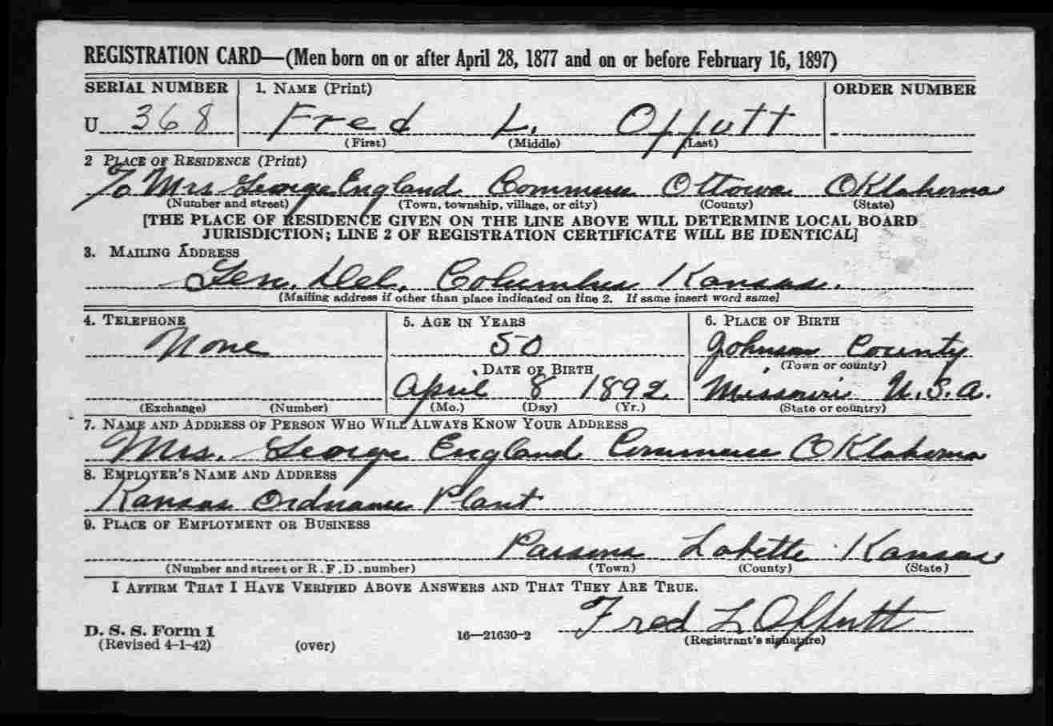 REGISTRATION CARD—(Men born on or after April 28, 1877 and on or before February 16, 1897)
SERIAL NUMBER 1. NAME (Print) ORDER NUMBER
U 368 Fred L. Offutt
(First) (Middle) (Last)
2 PLACE OF RESIDENCE (Print)
% Mrs George England Commerce Ottowa Oklahoma
(Number and street) (Town, township, village, or city) (County) (State)
[THE PLACE OF RESIDENCE GIVEN ON THE LINE ABOVE WILL DETERMINE LOCAL BOARD
JURISDICTION; LINE 2 OF REGISTRATION CERTIFICATE WILL BE IDENTICAL]
3. MAILING ADDRESS
Gen. Del. Columbus Kansas.
(Mailing address if other than place indicated on line 2. If same insert word same)
4. TELEPHONE 5. AGE IN YEARS 6. PLACE OF BIRTH
None 50 Johnson County
(Town or county)
DATE OF BIRTH
April 8 1892 Missouri U.S.A.
(Exchange) (Number) (Mo.) (Day) (Yr.) (State or country)
7. NAME AND ADDRESS OF PERSON WHO WILL ALWAYS KNOW YOUR ADDRESS
Mrs. George England Commerce Oklahoma
8. EMPLOYER'S NAME AND ADDRESS
Kansas Ordnance Plant
9. PLACE OF EMPLOYMENT OR BUSINESS
Parsons Labette Kansas
(Number and street or R. F. D. number) (Town) (County) (State)
I AFFIRM THAT I HAVE VERIFIED ABOVE ANSWERS AND THAT THEY ARE TRUE.
Fred L Offutt
D. S. S. Form 1
(Revised 4-1-42) (over) 16—21630-2 (Registrant's signature)